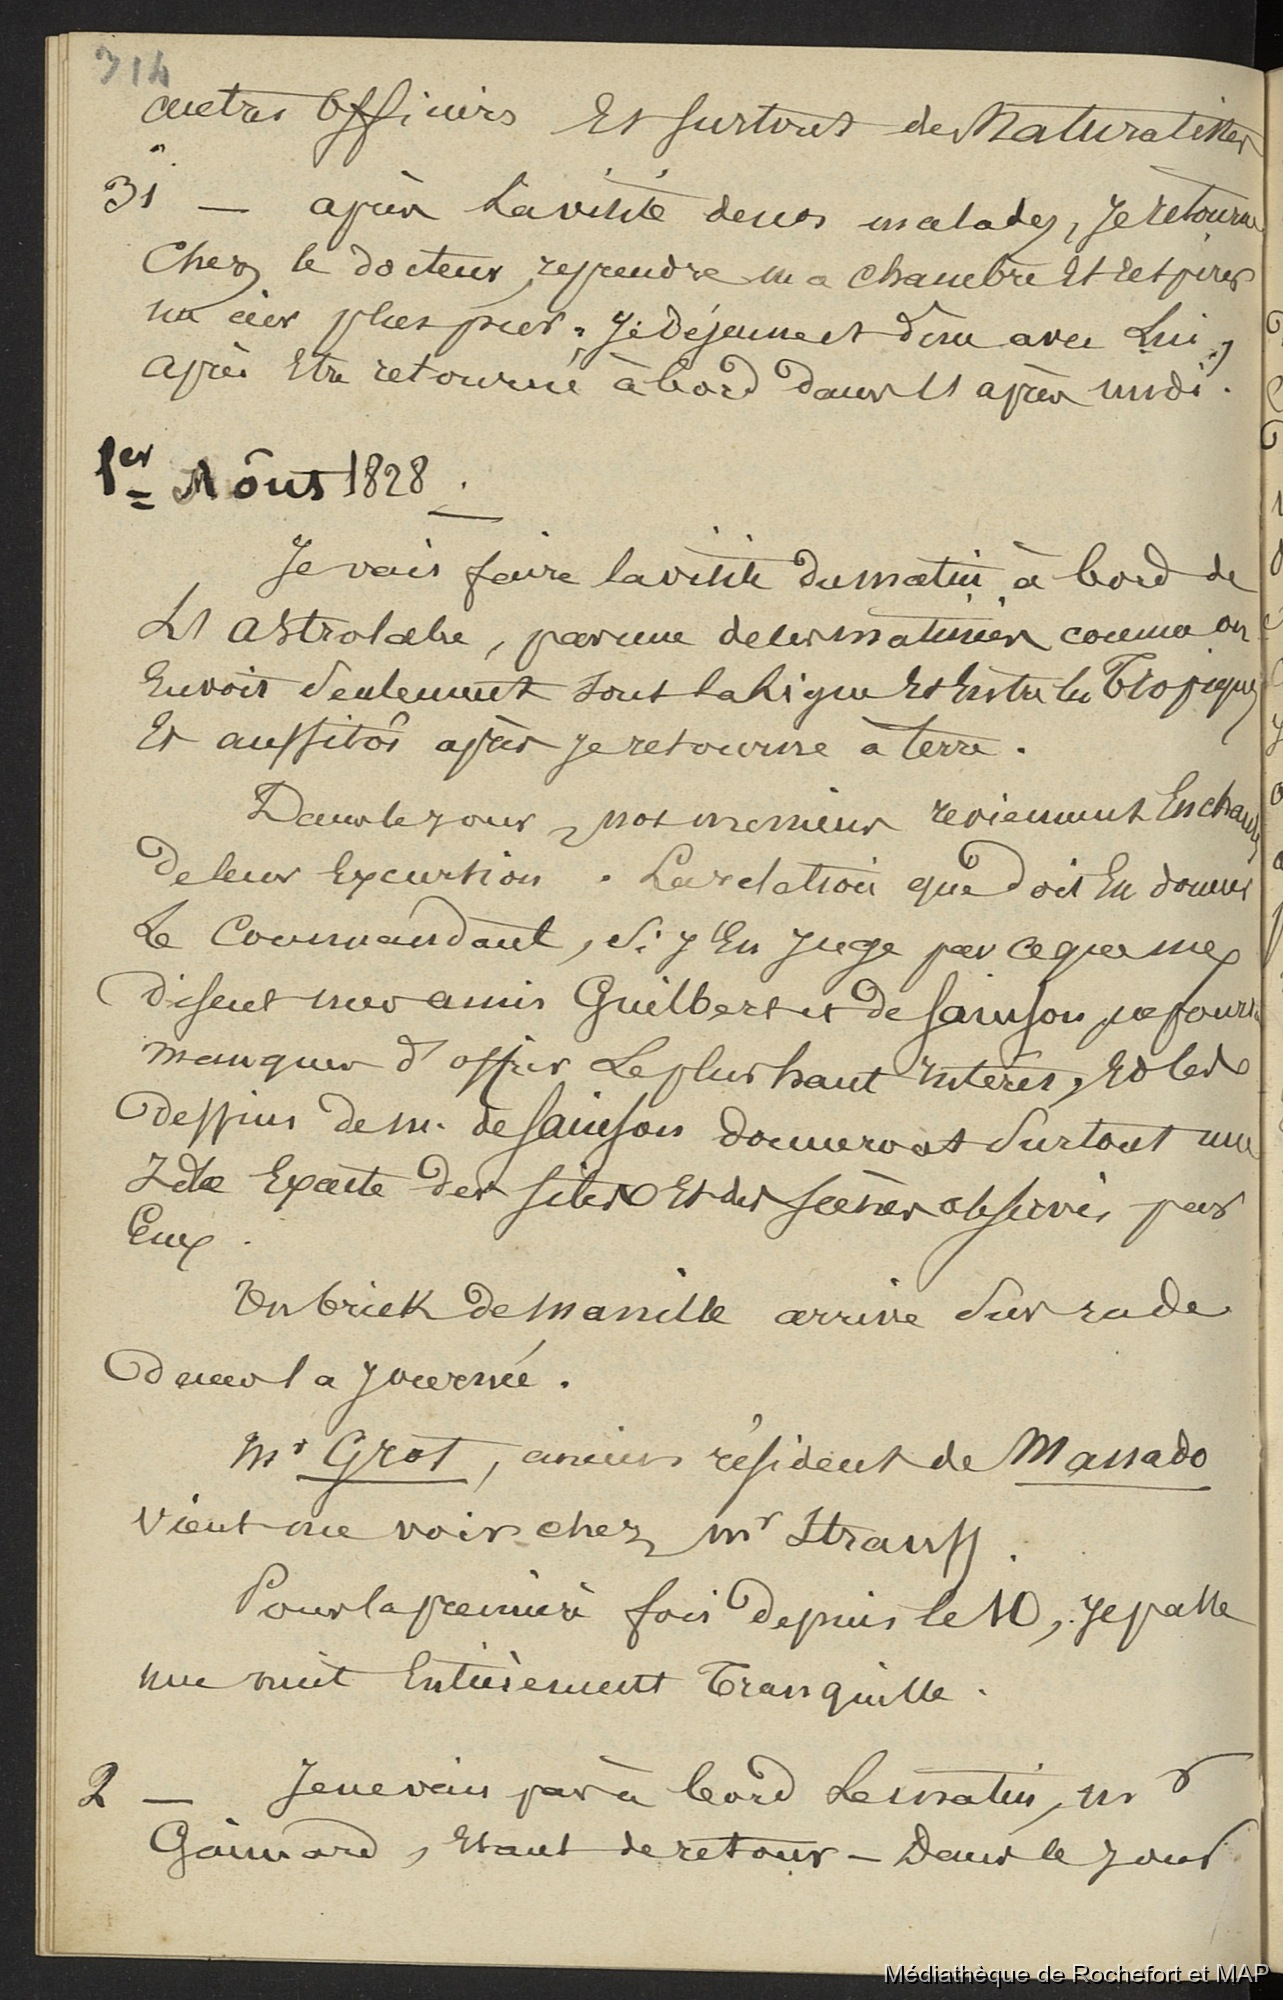 314
autres officiers et surtout des Naturalistes
31 — après la visite de nos malades, je retourne
chez le docteur, reprendre ma chambre et respirer
un air plus pur. je déjeune et dîne avec Lui,
après être retourné à bord dans l'après midi.
1er Aôut 1828.
Je vais faire la visite du matin, à bord de
L'Astrolabe, par une de ces matinées comme on
en voit seulement sous la ligne et entre les Tropiques
et aussitôt après je retourne à terre.
Dans le jour, nos messieurs reviennent Enchantés
de leur excursion. La relation que doit en donner
Le Commandant, si j'en juge par ce que me
disent mes amis Guilbert et de Sainson, ne pourra
manquer d'offrir Le plus haut intérêt, et les
dessins de m. de Sainson donneront surtout une
Idée Exacte des sites et des scènes observés par
Eux.
Un brick de Manille arrive sur rade
dans la journée.
Mr Grot, ancien résident de Manado
vient me voir chez mr Strauss.
Pour la première fois depuis le 10, je passe
une nuit Entièrement Tranquille.
2 — Je ne vais pas à bord Le matin, mr
Gaimard, étant de retour — Dans le jour
Médiathèque de Rochefort et MAP